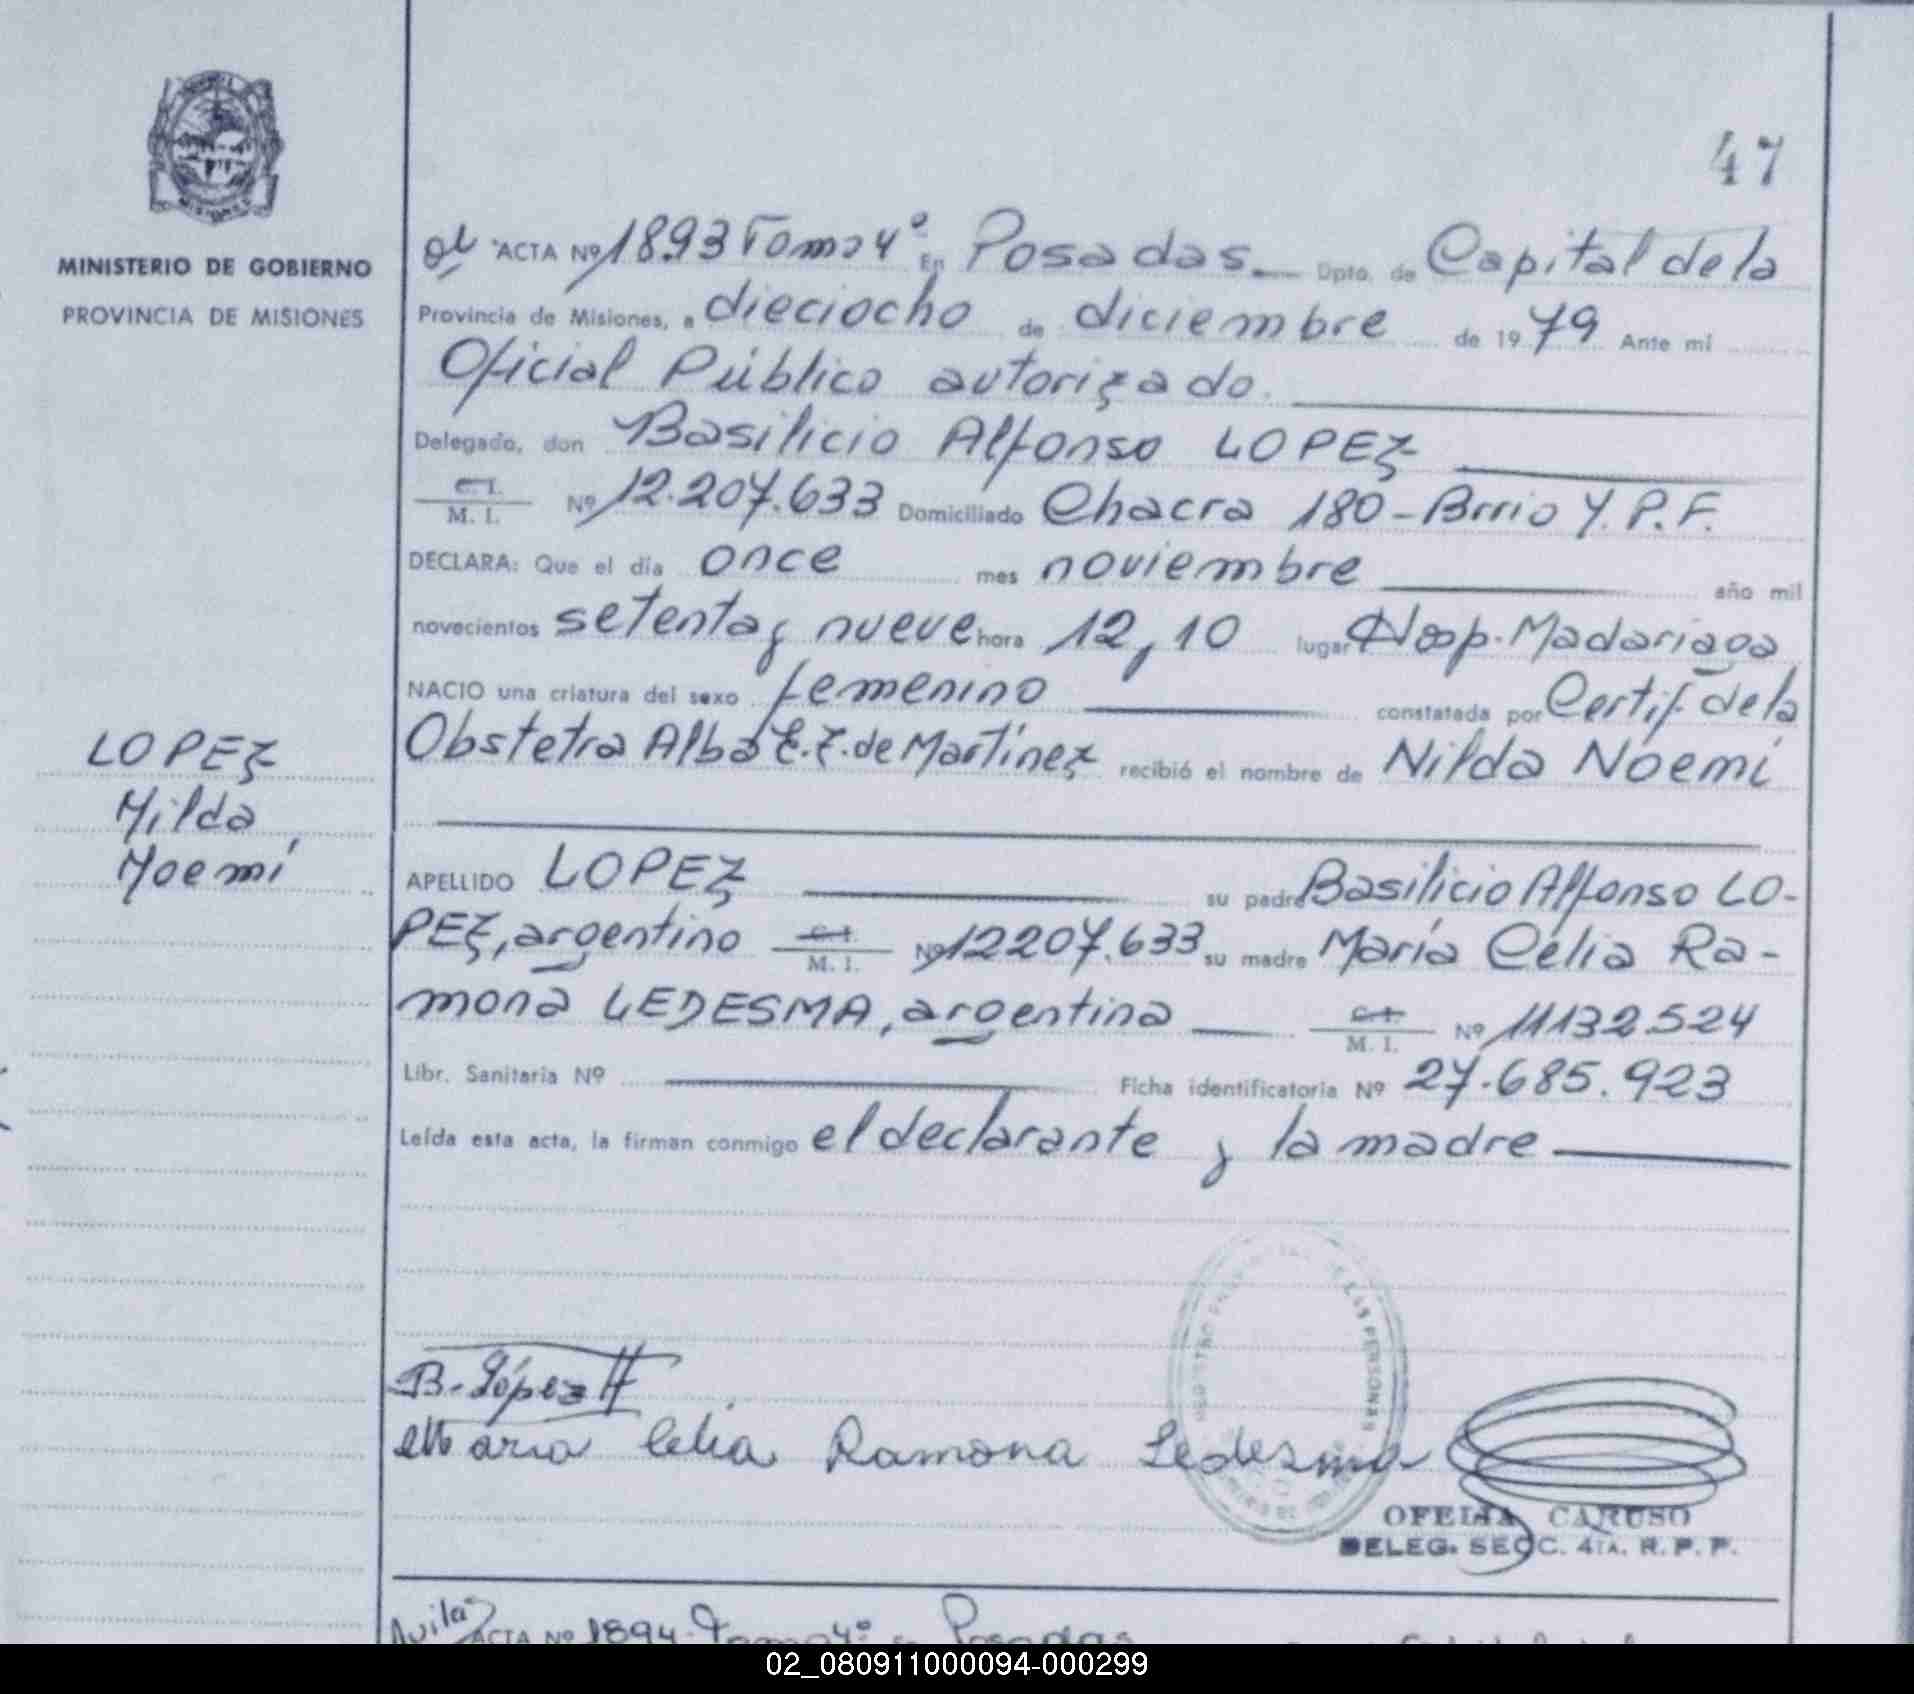 47
MINISTERIO DE GOBIERNO
PROVINCIA DE MISIONES
ACTA Nº 1893 Tomo 4º En Posadas Dpto. de Capital de la
Provincia de Misiones, a dieciocho de diciembre de 1979 Ante mi
Oficial Público autorizado.
Delegado, don Basilicio Alfonso LOPEZ
C. I. / M. I. Nº 12.207.633 Domiciliado Chacra 180 - Brrio Y.P.F.
DECLARA: Que el día once mes noviembre año mil
novecientos setenta y nueve hora 12,10 lugar Hosp. Madariaga
NACIO una criatura del sexo femenino constatada por Certif. de la
Obstetra Alba E. Z. de Martínez recibió el nombre de Nilda Noemí
LOPEZ
Nilda
Noemí
APELLIDO LOPEZ su padre Basilicio Alfonso LO-
PEZ, argentino C. I. / M. I. Nº 12207.633 su madre María Célia Ra-
mona LEDESMA, argentina C. I. / M. I. Nº 11132524
Libr. Sanitaria Nº Ficha identificatoria Nº 27.685.923
Leída esta acta, la firman conmigo el declarante y la madre
DE LAS PERSONAS
B. López
Maria Celia Ramona Ledesma
OFELIA CARUSO
DELEG. SECC. 4TA. R. P. P.
Avila ACTA Nº 1894 Tomo 4º En Posadas
02_080911000094-000299